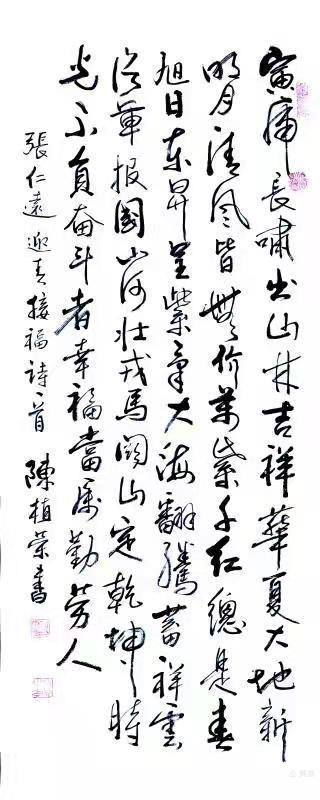 寅虎長嘯出山林吉祥華夏大地新
明月清風皆無价萬紫千紅總是春
旭日東昇呈紫氣大海翻騰蓄祥雲
從軍報國山河壯戎馬関山定乾坤時
光不負奮斗者幸福當屬勤勞人
張仁遠迎春接福詩一首 陳植榮書